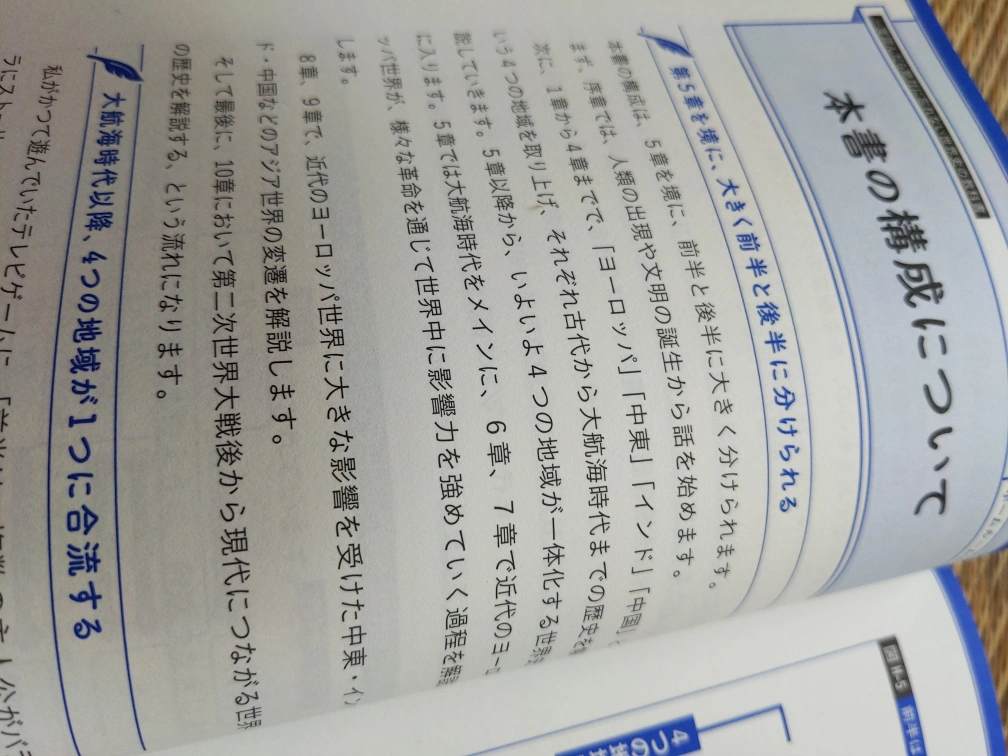 本書の構成について
第5章を境に、大きく前半と後半に分けられる
本書の構成は、5章を境に、前半と後半に大きく分けられます。
まず、序章では、人類の出現や文明の誕生から話を始めます。
次に、1章から4章までで、「ヨーロッパ」「中東」「インド」「中国」と
いう4つの地域を取り上げ、それぞれ古代から大航海時代までの歴史を
説していきます。5章以降から、いよいよ4つの地域が一体化する世界
に入ります。5章では大航海時代をメインに、6章、7章で近代のヨーロ
ッパ世界が、様々な革命を通じて世界中に影響力を強めていく過程を解説
します。
8章、9章で、近代のヨーロッパ世界に大きな影響を受けた中東・イン
ド・中国などのアジア世界の変遷を解説します。
そして最後に、10章において第二次世界大戦後から現代につながる世界
の歴史を解説する、という流れになります。
大航海時代以降、4つの地域が1つに合流する
私がかつて遊んでいたテレビゲームに、「前半は
図H-5 前半は
4つの